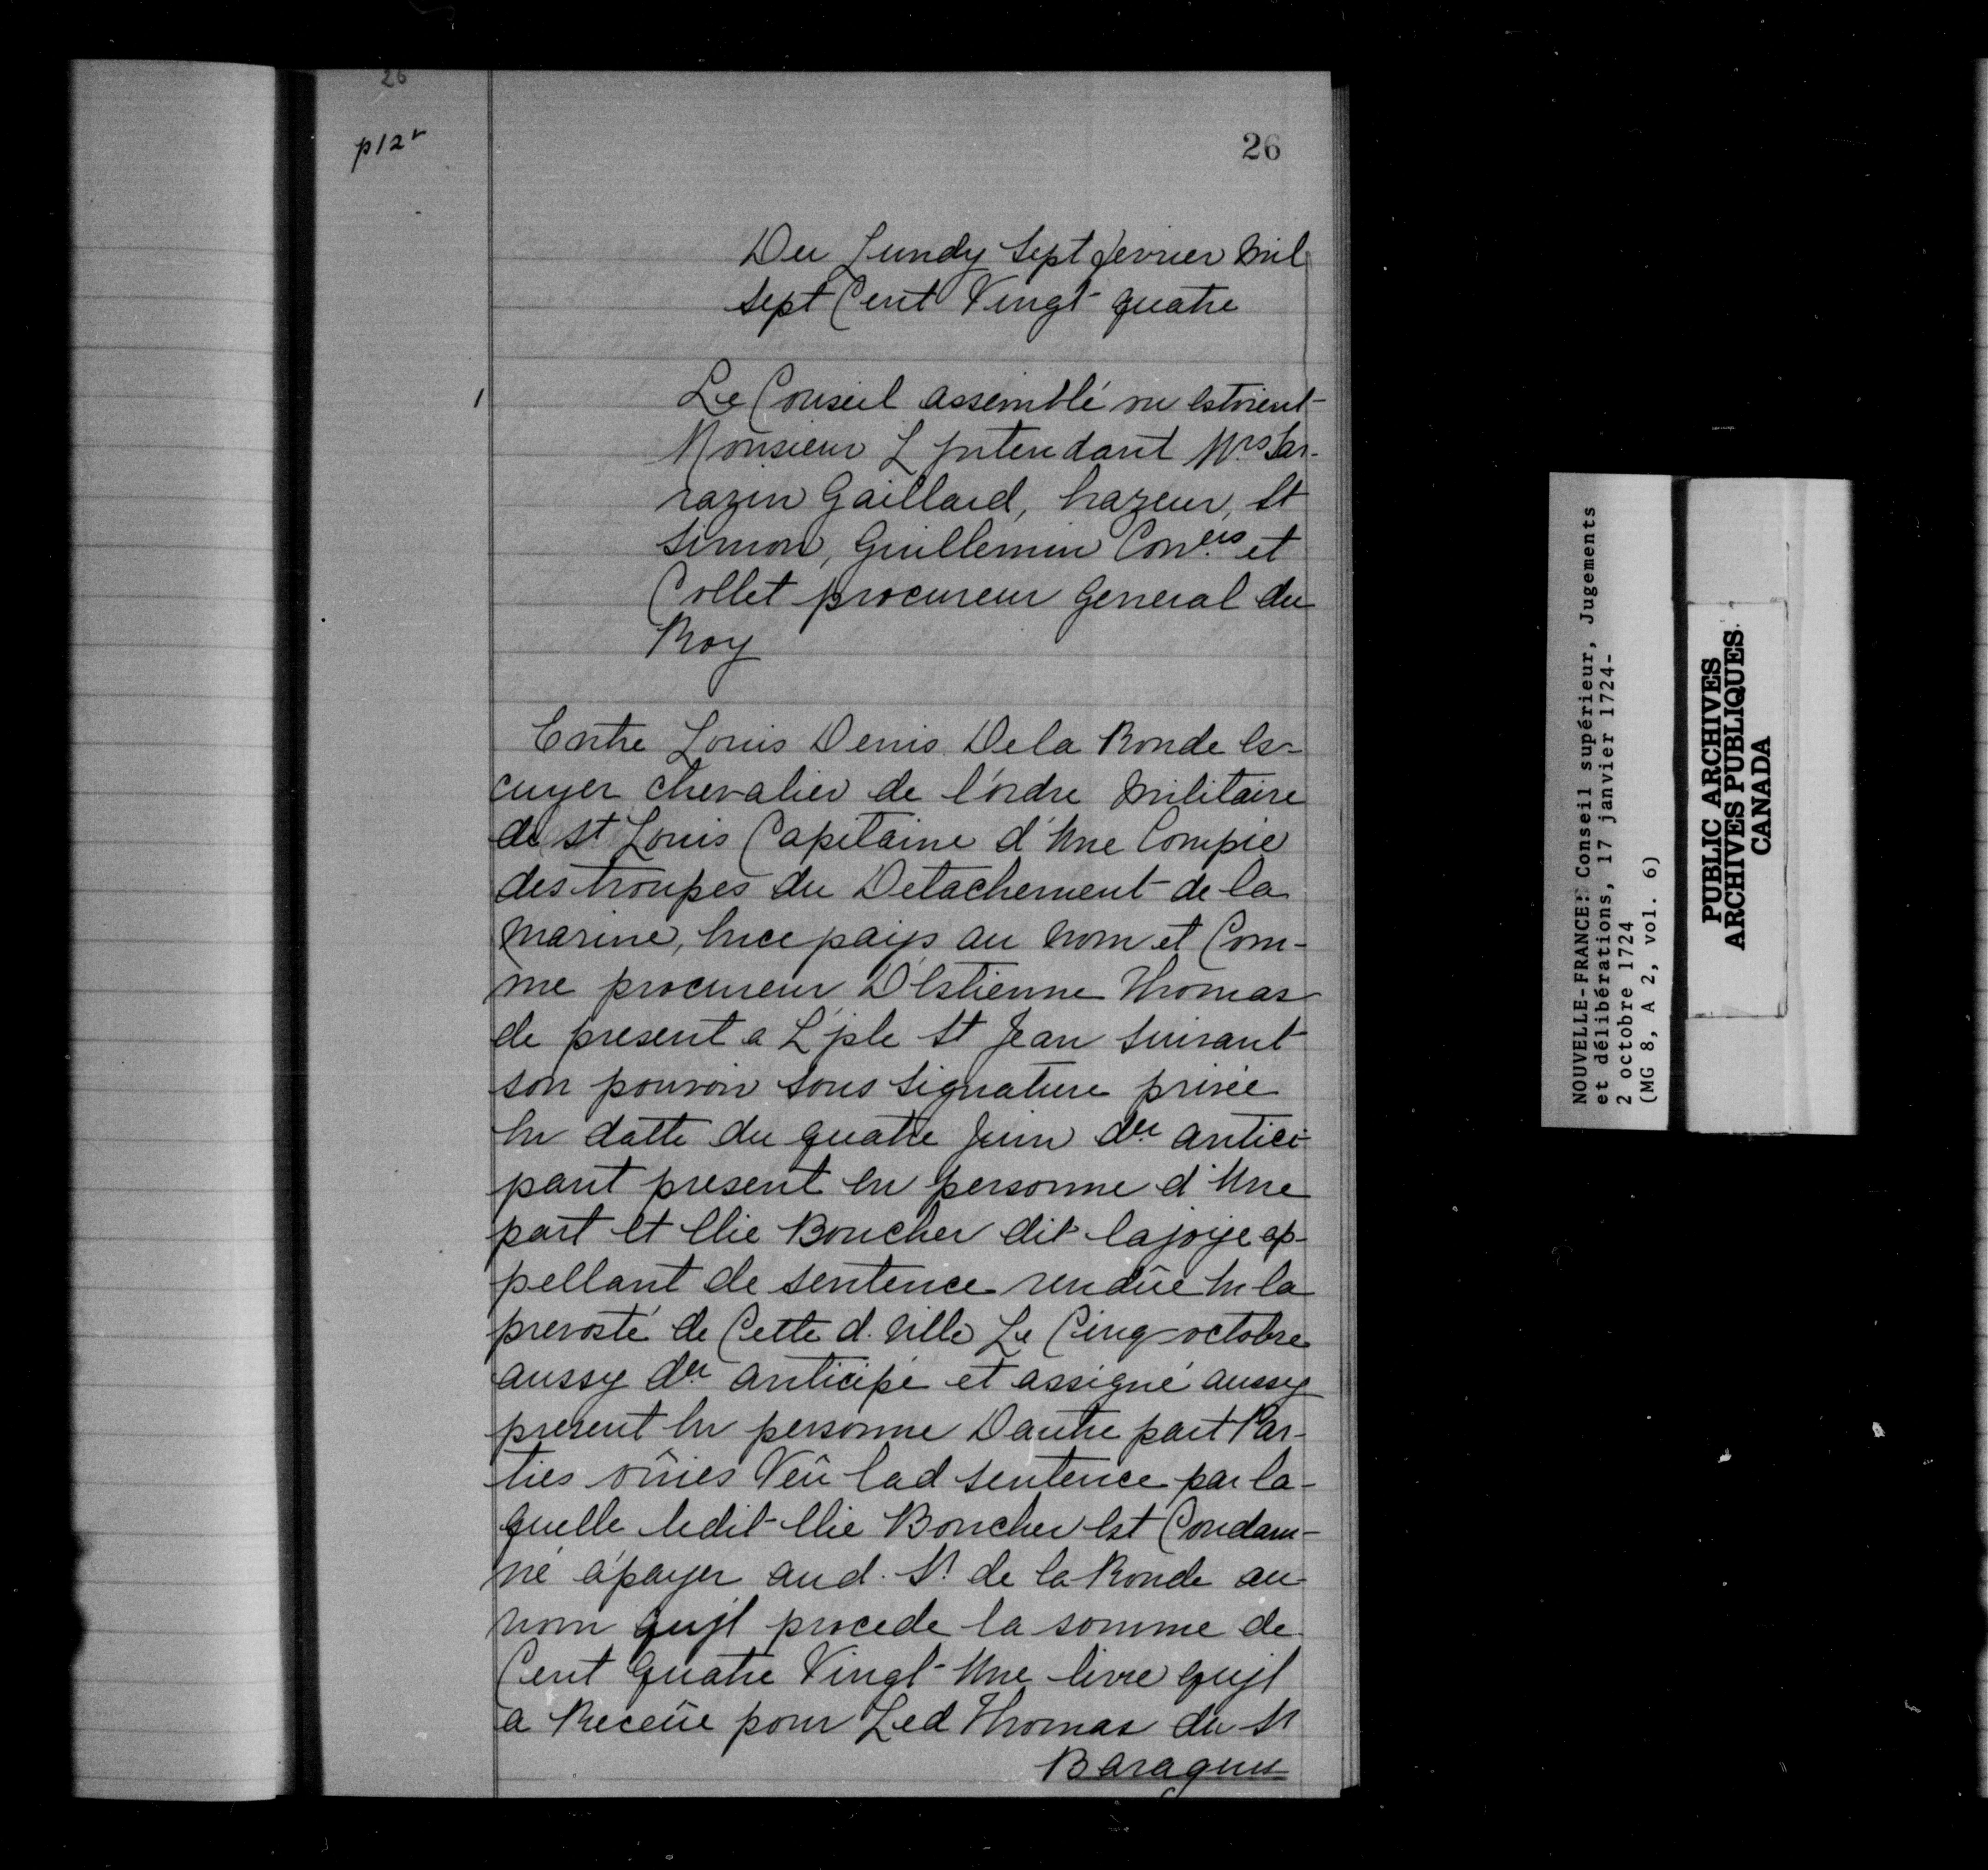 26
p12r
26
Du Lundy Sept fevrier mil
sept Cent Vingt quatre
1
Le Conseil assemblé ou estoient
Monsieur L jntendant Mrs Sar-
razin Gaillard, hazeur, St
Simon, Guillemin Coners et
Collet procureur General du
Roy
Entre Louis Denis De la Ronde Es-
cuyer chevalier de l'ordre militaire
de St Louis Capitaine d'Une Compie
des troupes du Detachement de la
marine, En ce pays au nom et Com-
me procureur D'Estienne Thomas
de present a L'jsle St Jean suivant
son pouvoir sous signature privée
En datte du quatre Juin der antici-
pant present En personne d'Une
part Et Elie Boucher dit lajoye ap-
pellant de sentence rendûe En la
prevosté de Cette d. Ville Le Cinq octobre
aussy der anticipé et assigné aussy
present En personne Dautre part Par-
ties oûies Veû lad sentence par la-
quelle ledit Elie Boucher Est Condam-
né à payer aud. Sr de la Ronde au
nom qujl procede la somme de
Cent Quatre Vingt Une livre qujl
a Receûe pour Led Thomas du Sr
Baragues
NOUVELLE-FRANCE: Conseil supérieur, Jugements
et délibérations, 17 janvier 1724-
2 octobre 1724
(MG 8, A 2, vol. 6)
PUBLIC ARCHIVES
ARCHIVES PUBLIQUES
CANADA